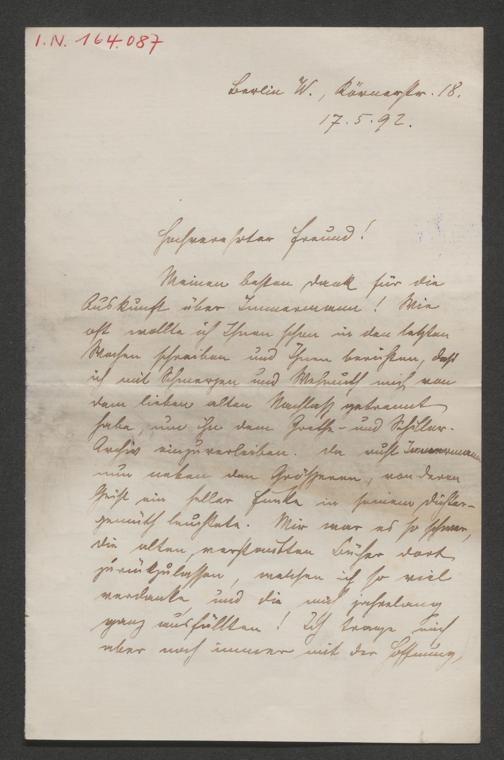 I.N. 164.087
Berlin W., Körnerstr. 18.
17.5.92.
Hochverehrter Freund!
Meinen besten Dank für die
Auskunft über Immermann! Wie
oft wollte ich Ihnen schon in den letzten
Wochen schreiben und Ihnen berichten, daß
ich mit Schmerzen und Wehmuth mich von
dem lieben alten Nachlaß getrennt
habe, um ihn dem Goethe- und Schiller-
Archiv einzuverleiben. Da ruht Immermann
nun neben den Größeren, von deren
Geist ein heller Funke in seinem Dichter-
gemüth leuchtete. Mir war es so schwer,
die alten, verstaubten Bücher dort
zurückzulassen, welchen ich so viel
verdanke und die mich jahrelang
ganz ausfüllten! Ich trage mich
aber noch immer mit der Hoffnung,